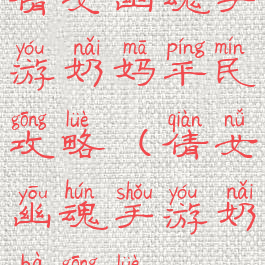 倩女幽魂手
yóu nǎi mā píng mín
游奶妈平民
gōng lüè qiàn nǚ
攻略(倩女
yōu hún shǒu yóu nǎi
幽魂手游奶
bà gōng lüè